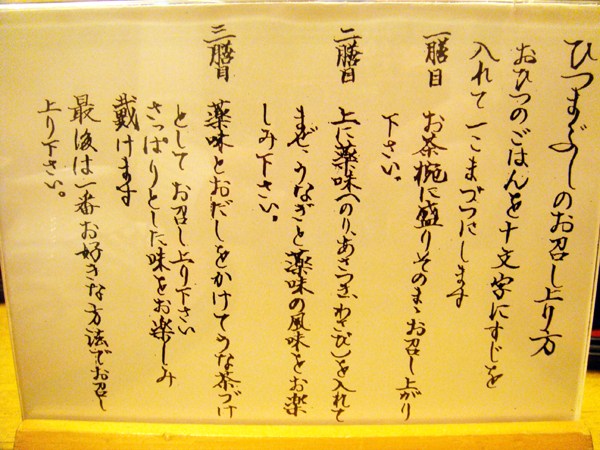 ひつまぶしのお召し上り方
おひつのごはんを十文字にすじを
入れて一こまづつにします
一膳目 お茶椀に盛りそのまゝお召し上がり
下さい。
二膳目 上に薬味(のり、あさつき、わさび)を入れて
まぜ、うなぎと薬味の風味をお楽
しみ下さい。
三膳目 薬味とおだしをかけてうな茶づけ
としてお召し上り下さい
さっぱりとした味をお楽しみ
戴けます
最後は一番お好きな方法でお召し
上り下さい。